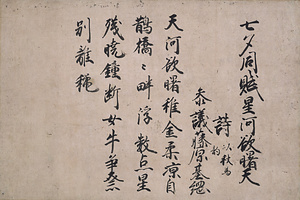 七夕同賦星河欲曙天
詩 以秋為韵
参議藤原基綱
天河欲曙稚金柔涼自
鵲橋々畔浮数点星
残暁鐘断女牛争
別離